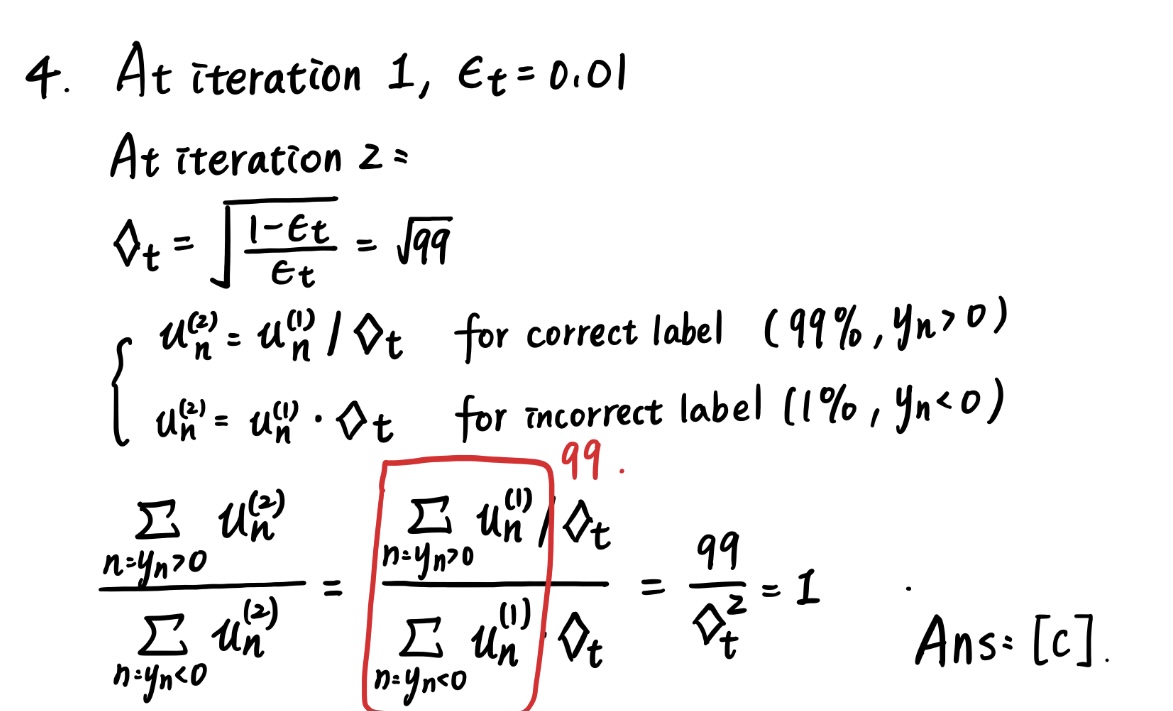 4. At iteration 1, ϵt = 0.01
At iteration 2 =
◊t = √((1-ϵt)/ϵt) = √99
un^(2) = un^(1) / ◊t for correct label (99%, yn>0)
un^(2) = un^(1) · ◊t for incorrect label (1%, yn<0)
99.
(∑n=yn>0 un^(2)) / (∑n=yn<0 un^(2)) = (∑n=yn>0 un^(1) / ◊t) / (∑n=yn<0 un^(1) · ◊t) = 99/◊t^2 = 1
Ans= [c].